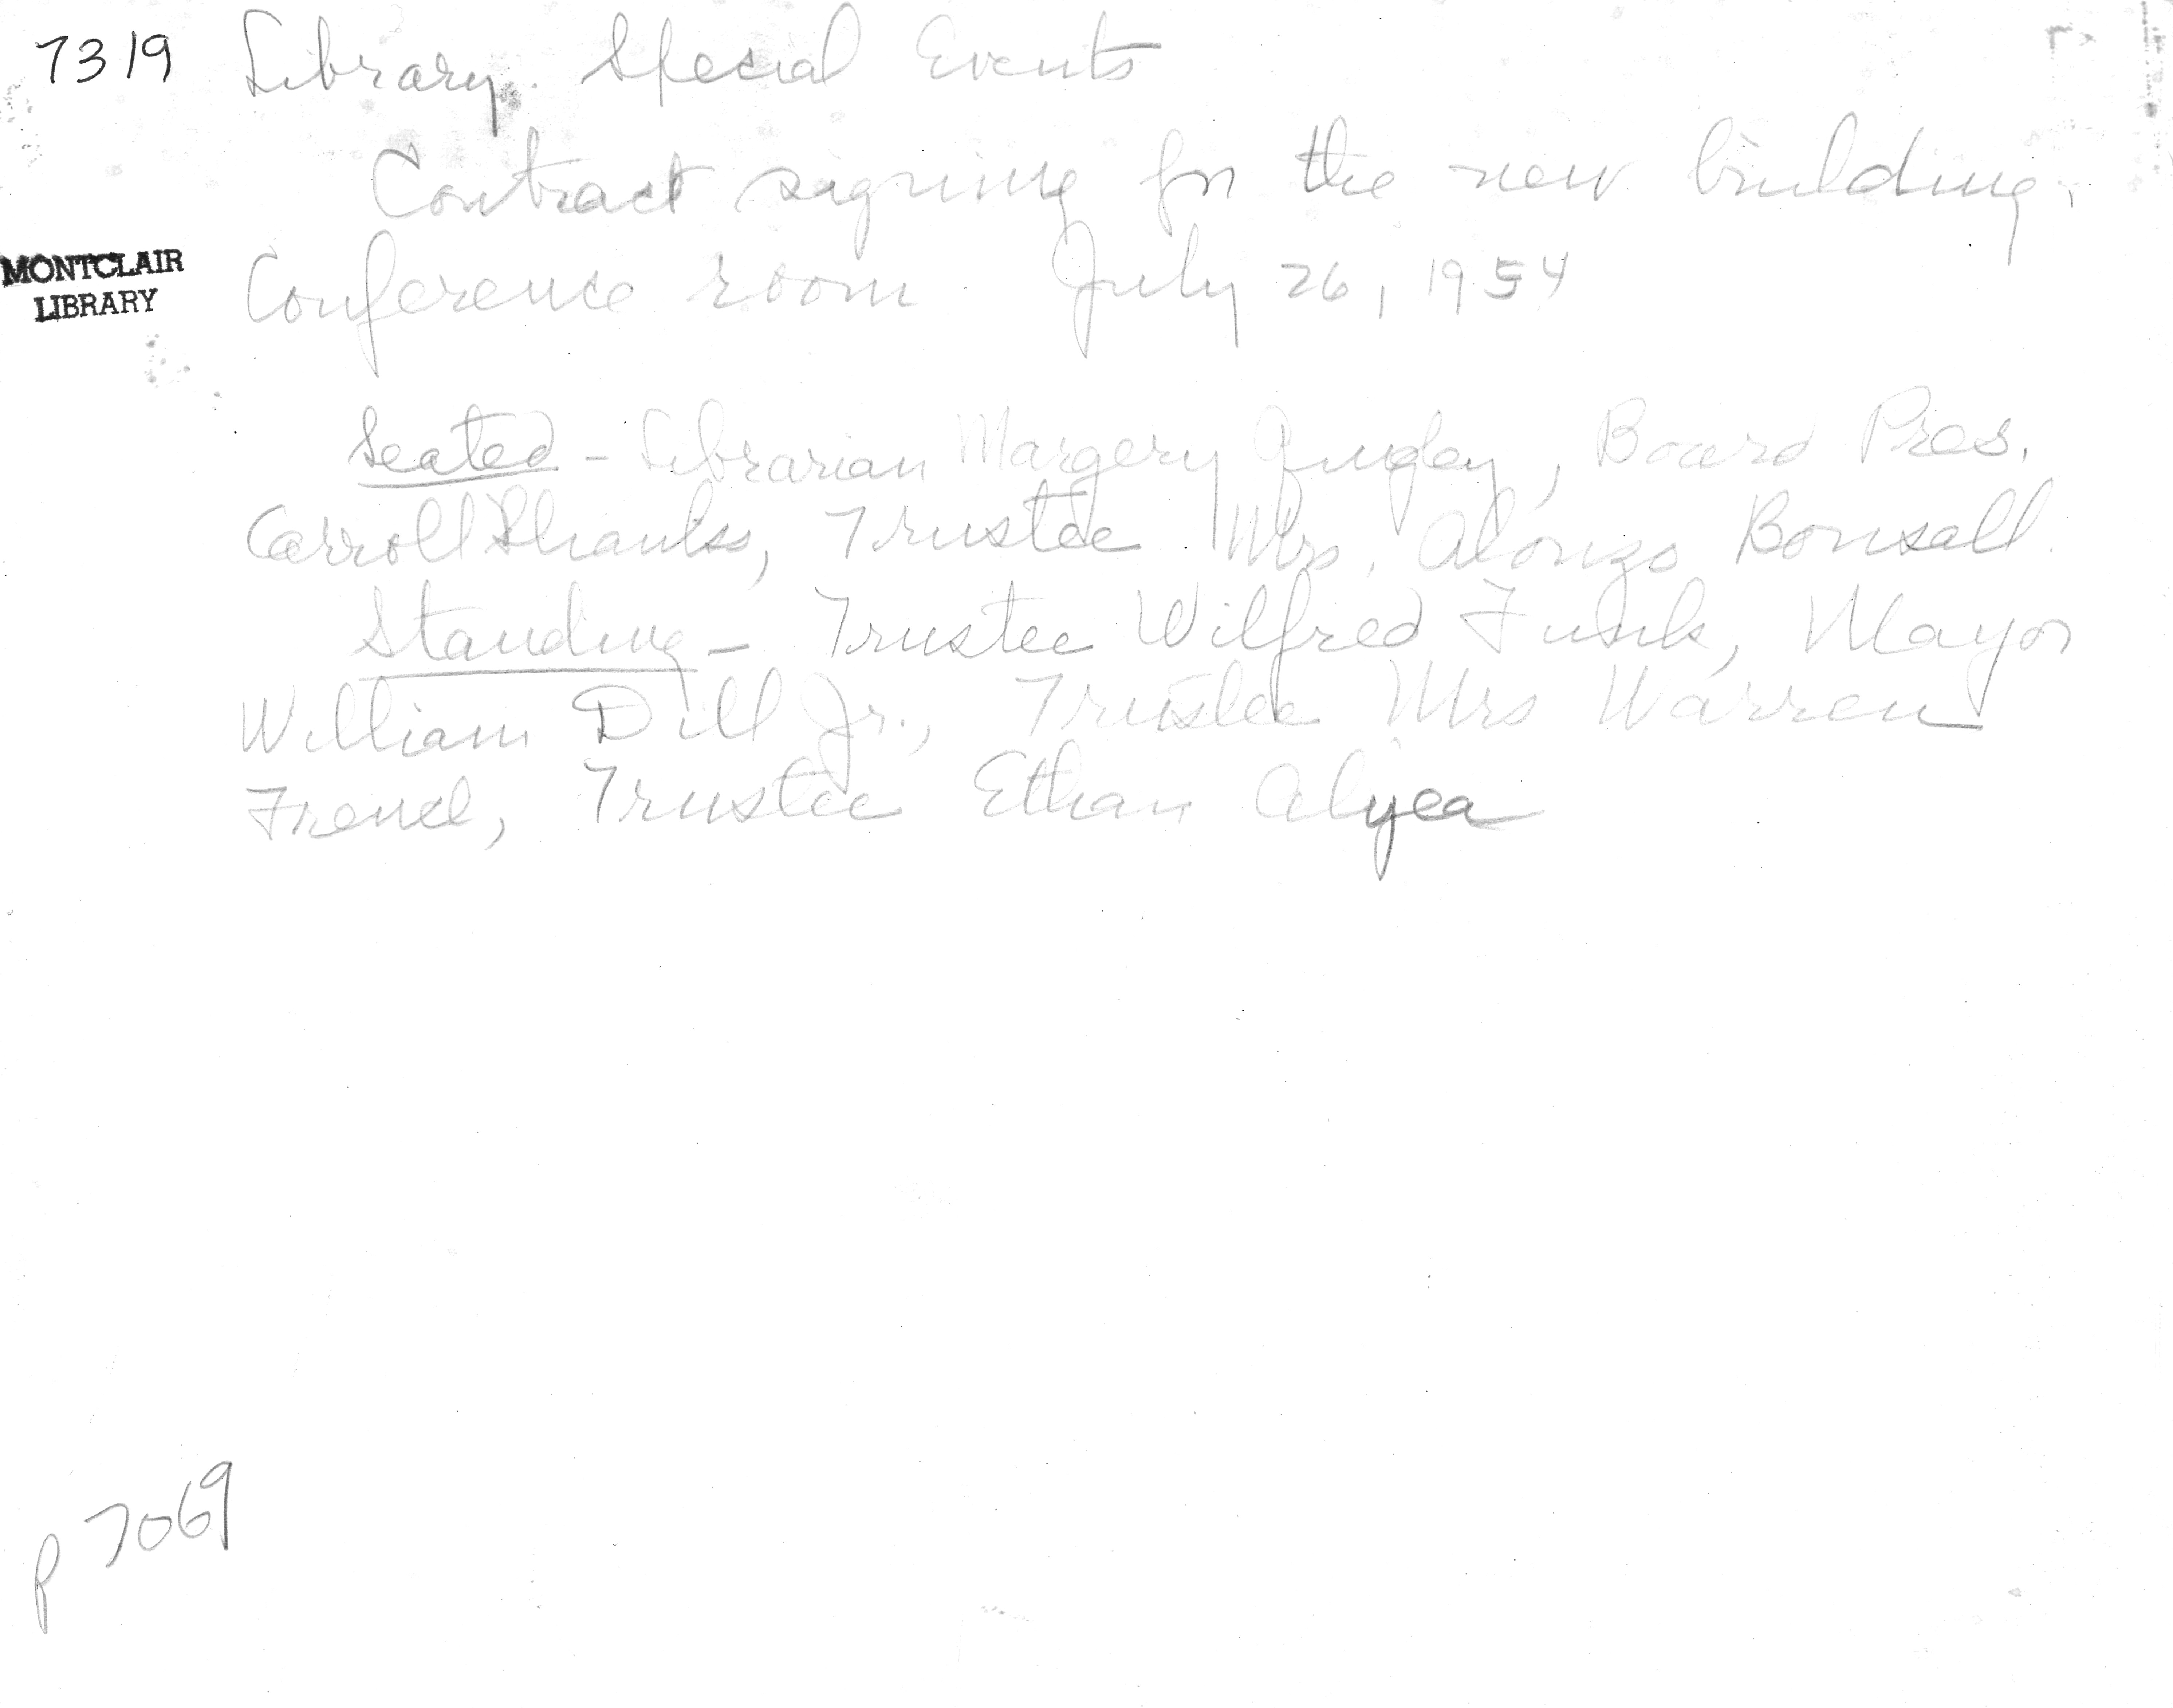 7319 Library. Special Events
Contract signing for the new building.
MONTCLAIR
LIBRARY
Conference room. July 26, 1954
Seated - Librarian Margery Quigley, Board Pres.
Carroll Shanks, Trustee Mrs. Alonzo Bonsall.
Standing - Trustee Wilfred Funk, Mayor
William Dill Jr., Trustee Mrs Warren
French, Trustee Ethan Alyea
P 7069